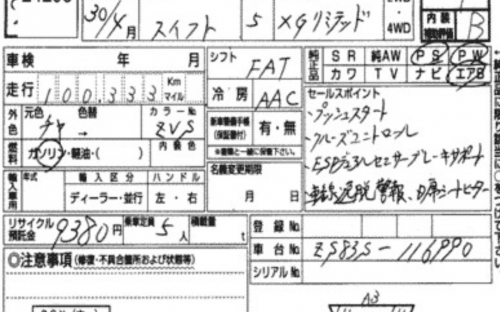 30/4月 スイフト 5 XGリミテッド 2WD・4WD
内装 補助評価 B
車検 年 月 シフト FAT 純正品 SR 純AW PS PW
カワ TV ナビ エアB
走行 100,333 Km マイル 冷房 AAC セールスポイント
・プッシュスタート
外色 元色 色替 カラーNo 新車整備手帳(保証書付) 有・無
チャ → ZVS ・クルーズコントロール
燃料 ガソリン・軽油・( ) 内装色 ※書類と一緒に保管下さい。
名義変更期限 月 日
輸入車用 年式 輸入区分 ハンドル
ディーラー・並行 左・右 車線逸脱警報、
リサイクル預託金 9380円 乗車定員 5人 積載量 t 登録No
車台No ZC83S-116990
◎注意事項(修復・不具合箇所および状態等) シリアルNo
A3